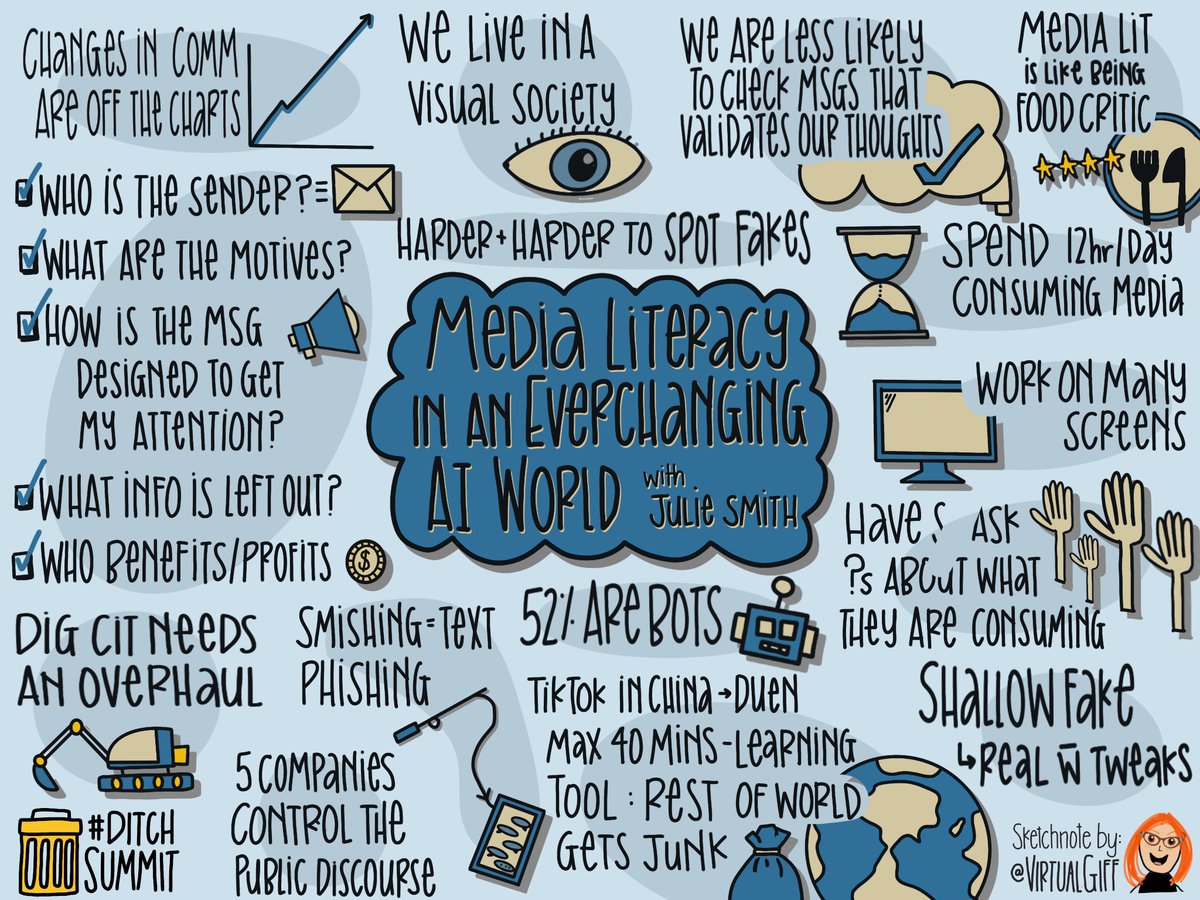 CHANGES IN COMM
ARE OFF THE CHARTS
WE LIVE IN A
VISUAL SOCIETY
WE ARE LESS LIKELY
TO CHECK MSGS THAT
VALIDATES OUR THOUGHTS
MEDIA LIT
IS LIKE BEING
FOOD CRITIC
WHO IS THE SENDER?=
WHAT ARE THE MOTIVES?
HOW IS THE MSG
DESIGNED TO GET
MY ATTENTION?
WHAT INFO IS LEFT OUT?
WHO BENEFITS/PROFITS
$
HARDER + HARDER TO SPOT FAKES
SPEND 12hr/DAY
CONSUMING MEDIA
MEDIA LITERACY
IN AN EVERCHANGING
AI WORLD with
JULIE SMITH
WORK ON MANY
SCREENS
HAVE S ASK
?s ABOUT WHAT
THEY ARE CONSUMING
DIG CIT NEEDS
AN OVERHAUL
SMISHING = TEXT
PHISHING
52% ARE BOTS
TIKTOK IN CHINA → DUEN
MAX 40 MINS - LEARNING
TOOL : REST OF WORLD
GETS JUNK
SHALLOW FAKE
↳ REAL w̄ TWEAKS
#DITCH
SUMMIT
5 COMPANIES
CONTROL THE
PUBLIC DISCOURSE
Sketchnote by:
@VIRTUALGIFF